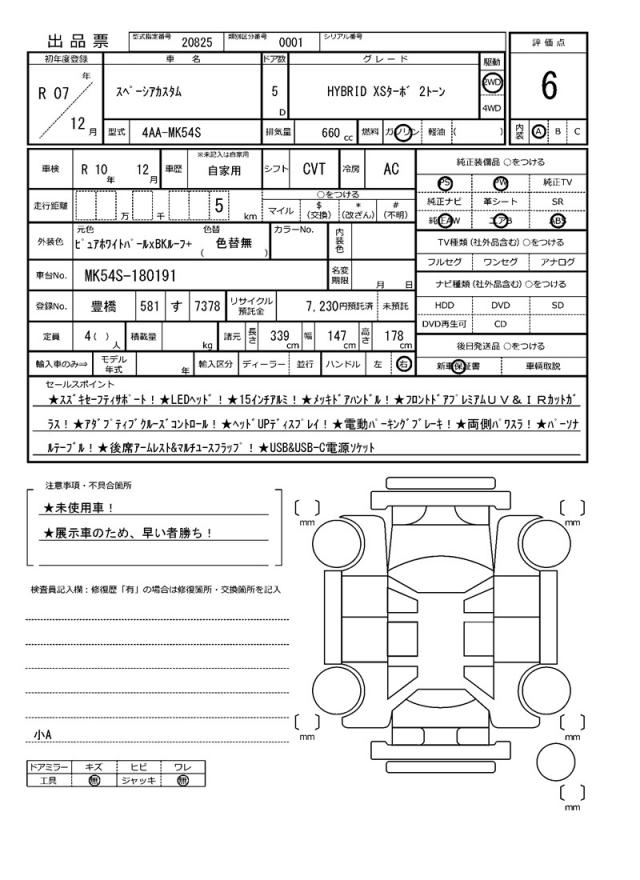 出品票 型式指定番号 20825 類別区分番号 0001 シリアル番号
評価点
初年度登録 車名 ドア数 グレード 駆動
R 07 年 スペーシアカスタム 5 D HYBRID XSターボ 2トーン 2WD 6
4WD
12 月 型式 4AA-MK54S 排気量 660 cc 燃料 ガソリン 軽油 ( ) 内装 A B C
車検 R 10 年 12 月 車歴 ※未記入は自家用 自家用 シフト CVT 冷房 AC 純正装備品 ○をつける
PS PW 純正TV
走行距離 万 千 5 km ○をつける 純正ナビ 革シート SR
マイル $ (交換) * (改ざん) # (不明) 純正AW エアB ABS
外装色 元色 ピュアホワイトパールxBKルーフ+ 色替 ( 色替無 ) カラーNo. 内装色 TV種類 (社外品含む) ○をつける
フルセグ ワンセグ アナログ
車台No. MK54S-180191 名変期限 月 日 ナビ種類 (社外品含む) ○をつける
登録No. 豊橋 581 す 7378 リサイクル預託金 7,230円預託済 未預託 HDD DVD SD
DVD再生可 CD
定員 4 ( ) 人 積載量 kg 諸元 長さ 339 cm 幅 147 cm 高さ 178 cm 後日発送品 ○をつける
輸入車のみ⇒ モデル年式 年 輸入区分 ディーラー 並行 ハンドル 左 右 新車保証書 車輌取説
セールスポイント
★スズキセーフティサポート！★LEDヘッド！★15インチアルミ！★メッキドアハンドル！★フロントドアプレミアムＵＶ＆ＩＲカットガ
ラス！★アダプティブクルーズコントロール！★ヘッドUPディスプレイ！★電動パーキングブレーキ！★両側パワスラ！★パーソナ
ルテーブル！★後席アームレスト&マルチユースフラップ！★USB&USB-C電源ソケット
注意事項・不具合箇所
★未使用車！
★展示車のため、早い者勝ち！
mm mm
検査員記入欄：修復歴「有」の場合は修復箇所・交換箇所を記入
小A
mm mm
ドアミラー キズ ヒビ ワレ
工具 無 ジャッキ 無
mm